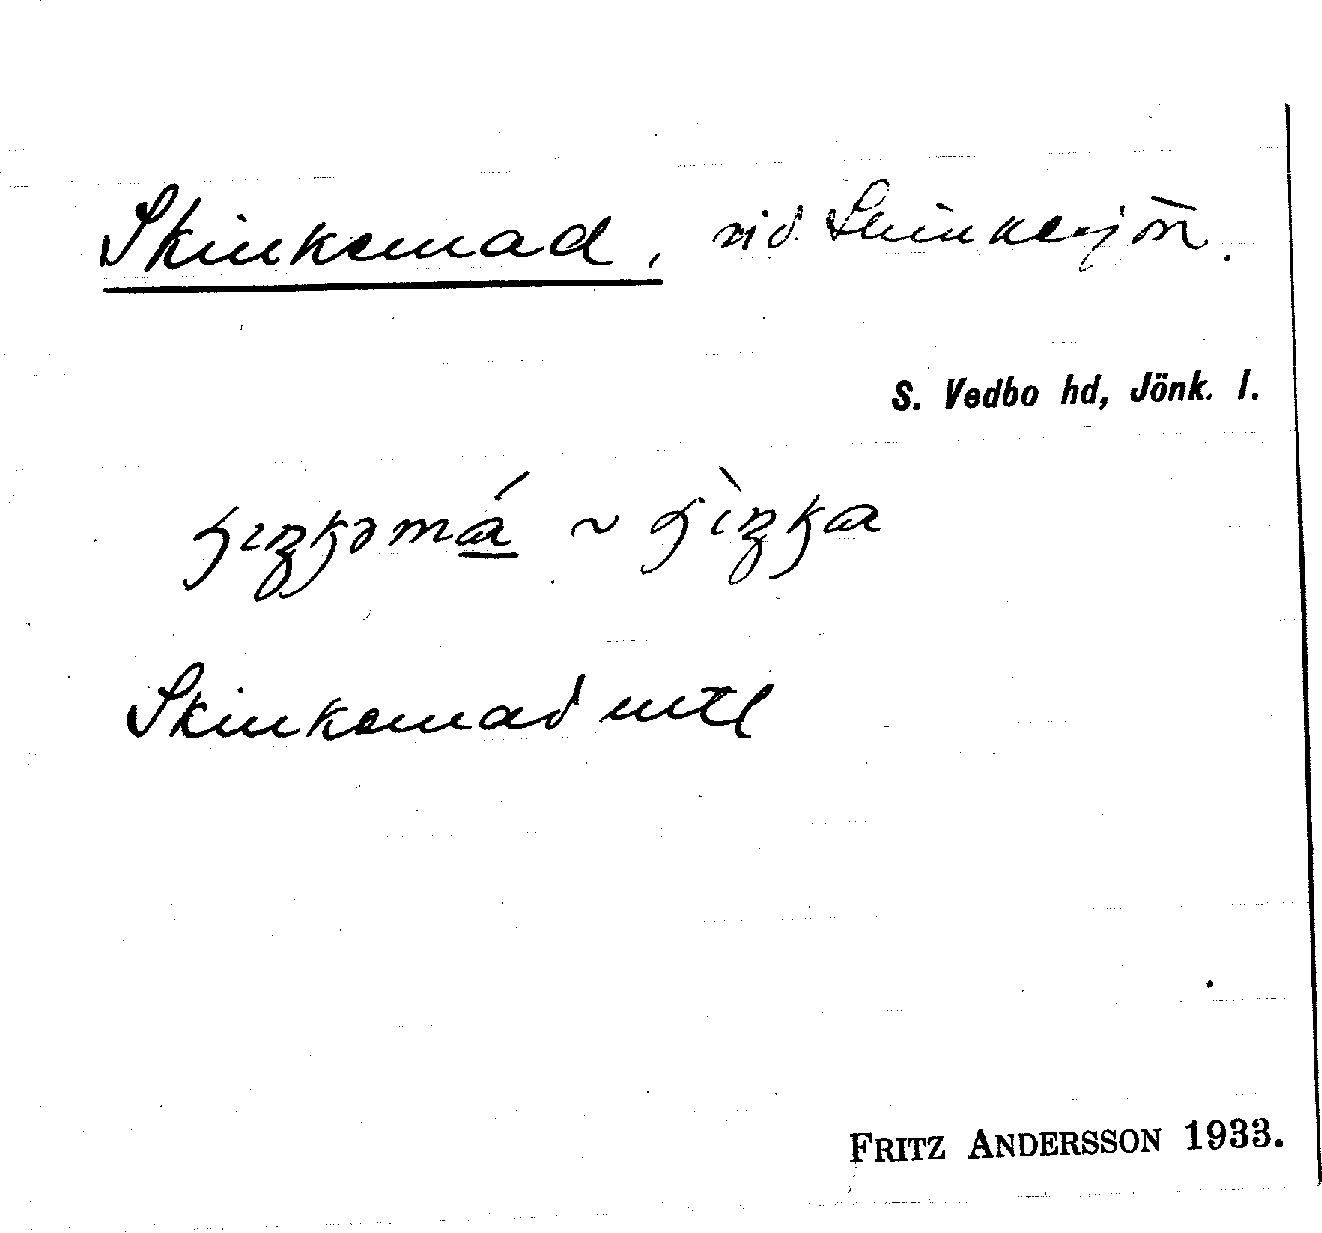 Skinkemad, vid Skinkesjön.
S. Vedbo hd, Jönk. l.
Skinkemad mtl
FRITZ ANDERSSON 1933.